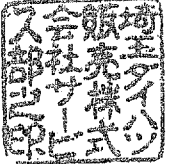 埼玉ダイハツ
販売株式
会社サービ
ス部之印